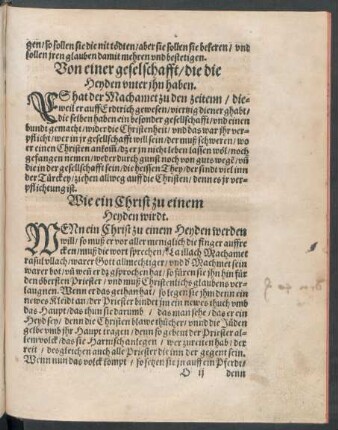 gen / so sollen sie die nit tödten / aber sie sollen sie bekeren / vnd
sollen jren glauben damit mehren vnd bestetigen.
Von einer geselschafft / die die
Heyden vnter jhn haben.
ES hat der Machamet zu den zeitenn / die-
weil er auff Erdtrich gewesen / viertzig diener ghabt /
die selben haben ein besonder geselschafft / vnd einen
bundt gemacht / wider die Christenheit / vnd das war jhr ver-
pflicht / wer in jr geselschafft will sein / der muß schweren / wo
er einen Christen anfall / dz er jn nicht leben lassen wöl / noch
gefangen nemen / weder durch gunst noch von guts wegē / vñ
die in der geselschafft sein / die heissen They / der sind viel inn
der Türckey / ziehen allweg auff die Christen / denn es jr ver-
pflichtung ist.
Wie ein Christ zu einem
Heyden wirdt.
WEnn ein Christ zu einem Heyden werden
will / so muß er vor aller meniglich die finger auffre-
cken / muß die wort sprechen / La illach Machamet
rasul vllach / warer Gott allmechtiger / vnd Machmet sein
warer bot / vñ weñ er dz gsprochen hat / so füren sie jhn hin für
den obersten Priester / vnd muß Christenlichs glaubens ver-
laugnen. Wenn er das gethan hat / so legen sie jhm denn ein
newes Kleidt an / der Priester bindet jm ein newes thuch vmb
das Haupt / das thun sie darumb / das man sehe / das er ein
Heyd sey / denn die Christen blawe thücher / vnnd die Jüden
gelbe vmb jhr Haupt tragen / denn so gebeut der Priester al-
lem volck / das sie Harnisch anlegen / wer zu reiten hab / der
reit / desgleichen auch alle Priester die inn der gegent sein.
Wenn nun das volck kompt / so setzen sie jn auff ein Pferdt /
O ij denn